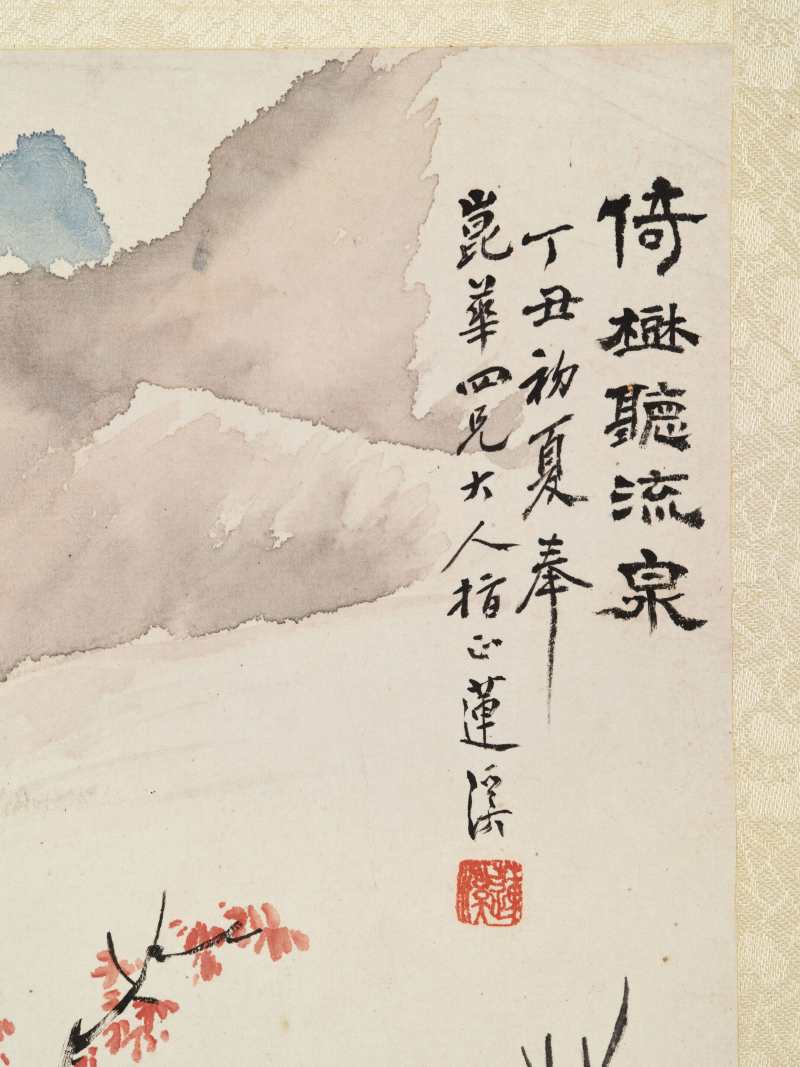 倚樹聽流泉
丁丑初夏奉
崑華四兄大人指正蓮溪
蓮溪